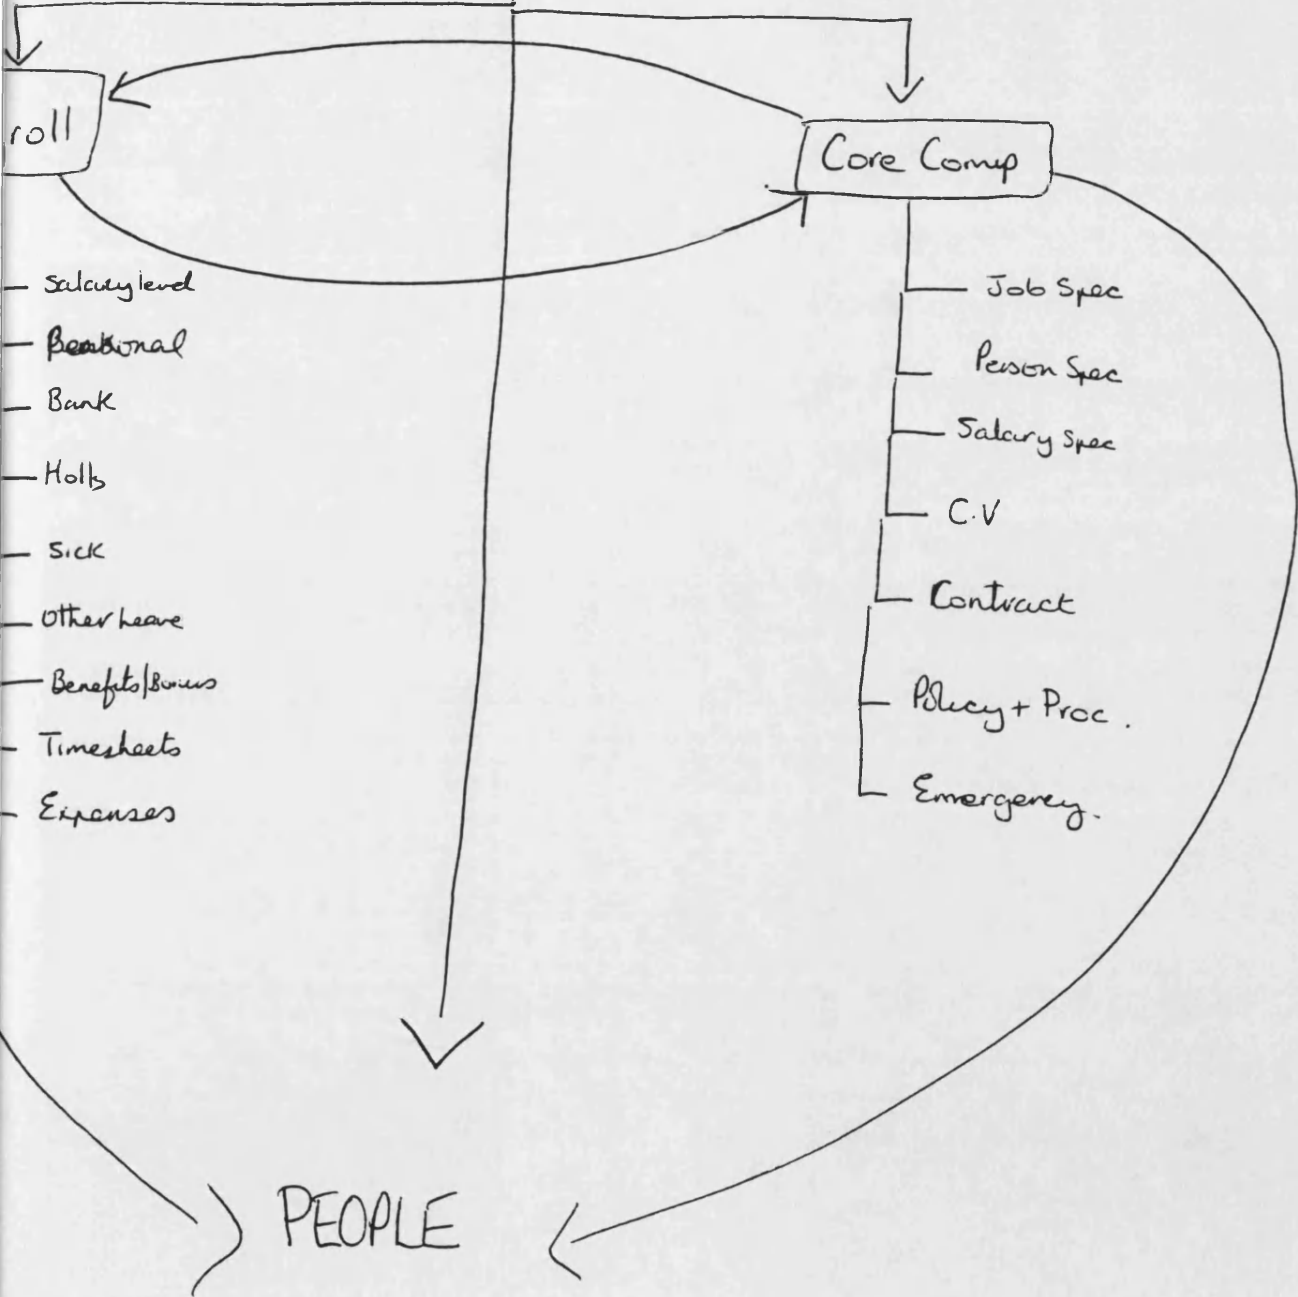 roll
Salary level
Bank
Holls
Sick
Other Leave
Benefits/Bonus
Timesheets
Expenses
Core Comp
Job Spec
Person Spec
Salary Spec
C.V
Contract
Policy + Proc.
Emergency.
PEOPLE